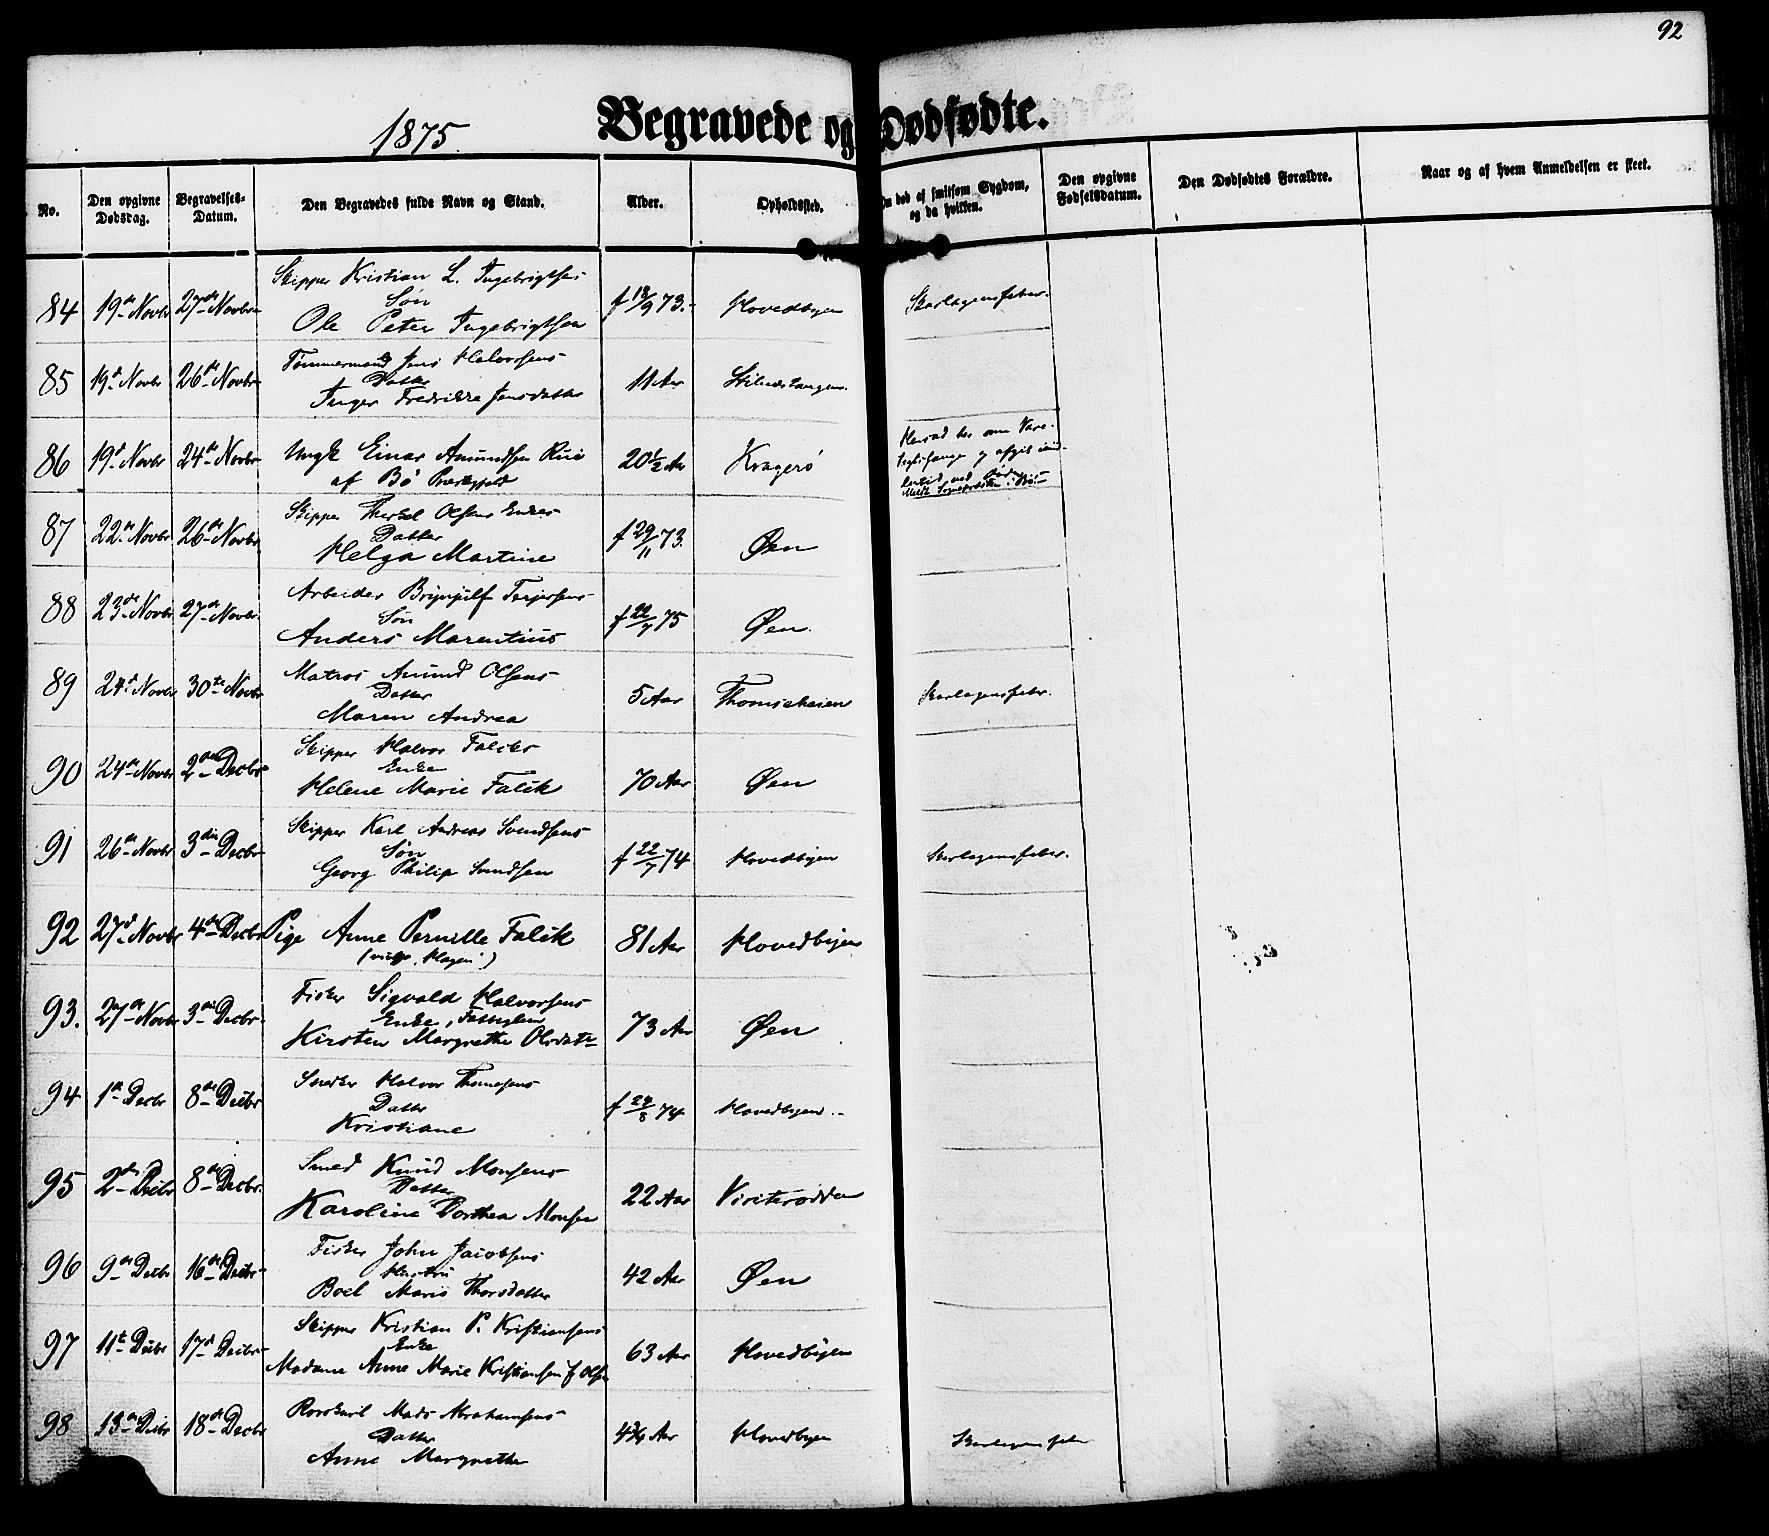 92
1875.
Begravede og Dødfødte.
No.
Den opgivne Dødsdag.
Begravelses-Datum.
Den Begravedes fulde Navn og Stand.
Alder.
Opholdssted.
død af smitsom Sygdom, og da hvilken.
Den opgivne Fødselsdatum.
Den Dødfødtes Forældre.
Naar og af hvem Anmeldelsen er skeet.
Skipper Kristian L. Ingebrigtsens
84 19de Novbr 27de Novbr Søn f 13/9 73. Hovedbyen Skarlagensfeber.
Ole Peter Ingebrigtsen
Tømmermand Jens Halvorsens
85 19d Novbr 26de Novbr Datter 11 Aar
Inger Fredrikke Jensdatter
86 19d Novbr 24de Novbr Ungk Einar Aamundsen Rui 20½ Aar Kragerø
af Bø Præstegjeld
Skipper Therkel Olsens Enkes
87 22de Novbr 26de Novbr Datter f 29/11 73. Øen
Helga Martine
Arbeider Brynjulf Terjesens
88 23de Novbr 27de Novbr. Søn f 22/7 75 Øen.
Anders Marentius
Matros Amund Olsens
89 24d Novbr 30te Novbr Datter 5 Aar Thomeseheien Skarlagensfeber.
Maren Andrea
Skipper Halvor Falcks
90 24de Novbr 2den Decbr Enke 70 Aar Øen
Helene Marie Falck
Skipper Karl Andreas Svendsens
91 26de Novbr 3die Decbr Søn f 22/7 74 Hovedbyen Skarlagensfeber.
Georg Philip Svendsen
92 27d Novbr 4de Decbr Pige Anne Pernille Falck 81 Aar Hovedbyen
Fisker Sigvald Halvorsens
93. 27de Novbr 3die Decbr. Enke, Fattiglem 73 Aar Øen
Kirsten Margrethe Olsdatr
Snedker Halvor Thomesens
94 1ste Decbr 8de Decbr Datter f 24/8 74 Hovedbyen
Kristiane
Smed Knud Monsens
95 2den Decbr 8de Decbr. Datter 22 Aar
Karoline Dorthea Monsen
Fisker John Jacobsens
96 9de Decbr 16de Decbr Hustru 42 Aar Øen
Boel Marie Thorsdatter
Skipper Kristian P. Kristiansens
97 11te Decbr 17d Decbr Enke 63 Aar Hovedbyen
Madame Anne Marie Kristiansen f Olsen
Rorskarl Mads Abrahamsens
98 13de Decbr 18de Decbr Datter 4¾ Aar Hovedbyen Skarlagensfeber
Anne Margrethe